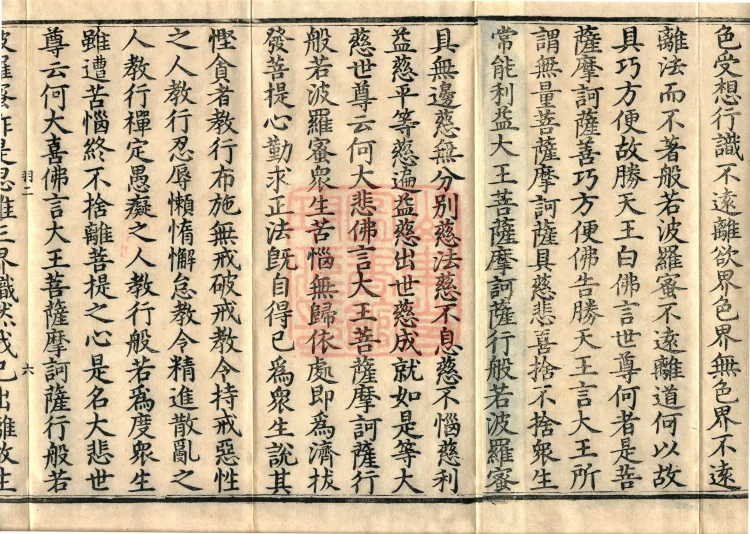 色受想行識不遠離欲界色界無色界不遠
離法而不著般若波羅蜜不遠離道何以故
具巧方便故勝天王白佛言世尊何者是菩
薩摩訶薩善巧方便佛告勝天王言大王所
謂無量菩薩摩訶薩具慈悲喜捨不捨眾生
常能利益大王菩薩摩訶薩行般若波羅蜜
具無邊慈無分別慈法慈不息慈不惱慈利
益慈平等慈遍益慈出世慈成就如是等大
慈世尊云何大悲佛言大王菩薩摩訶薩行
般若波羅蜜眾生苦惱無歸依處即為濟拔
發菩提心勤求正法既自得已為眾生說其
慳貪者教行布施無戒破戒教令持戒惡性
之人教行忍辱懶惰懈怠教令精進散亂之
人教行禪定愚癡之人教行般若為度眾生
雖遭苦惱終不捨離菩提之心是名大悲世
尊云何大喜佛言大王菩薩摩訶薩行般若
羽二
六
波羅蜜作是思惟三界熾然我已出離故生